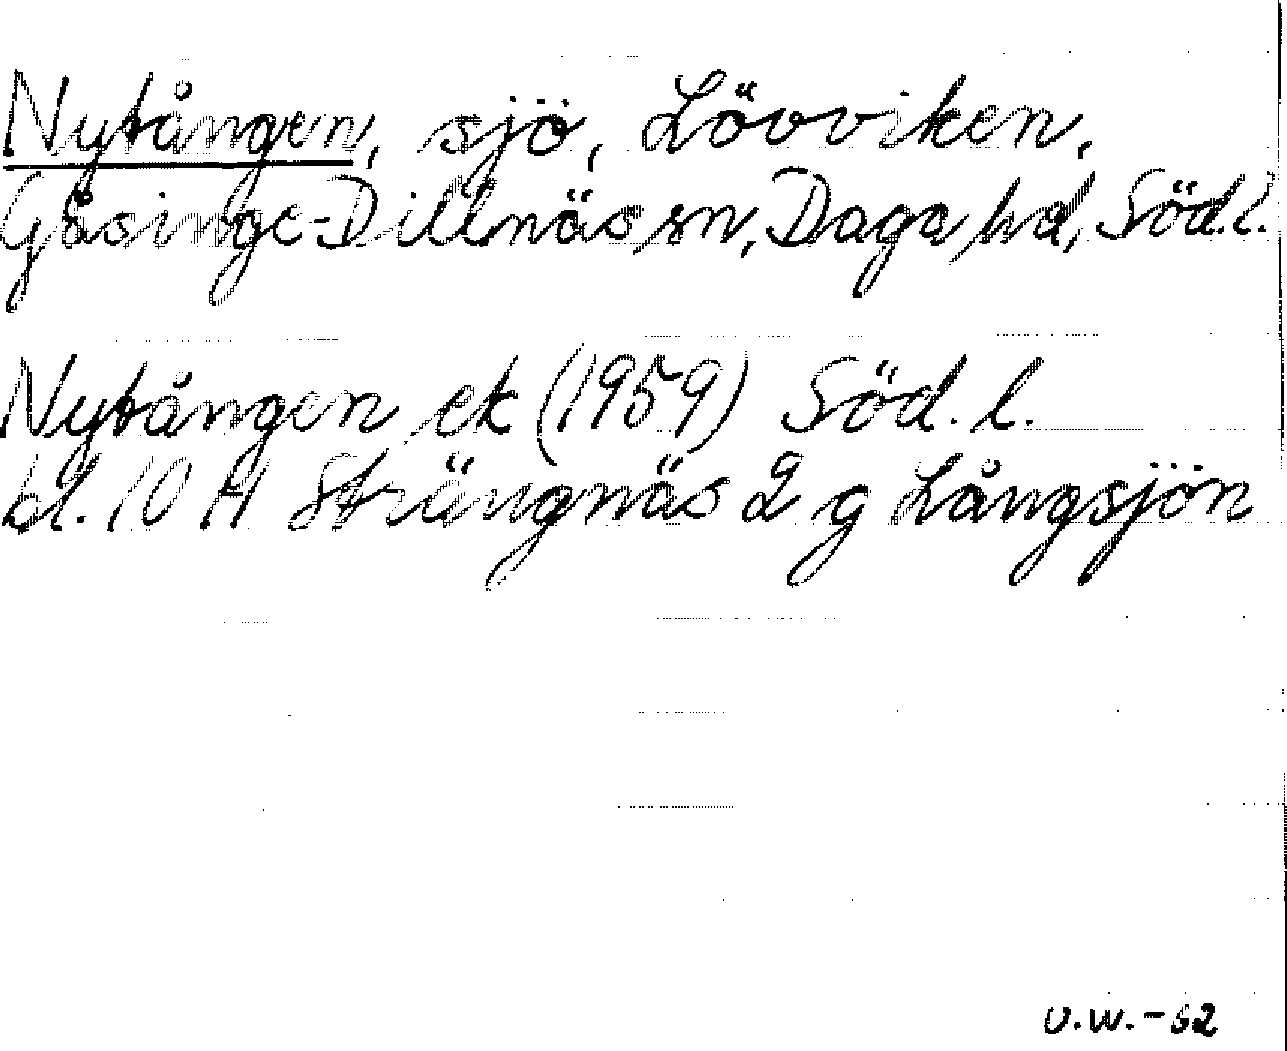 Nytången, sjö, Lövviken,
Gåsinge-Dillnäs sn, Daga hd, Söd.l.
Nytången ek (1959) Söd. l.
bl. 10 H Strängnäs 2 g Långsjön
U.W.-62